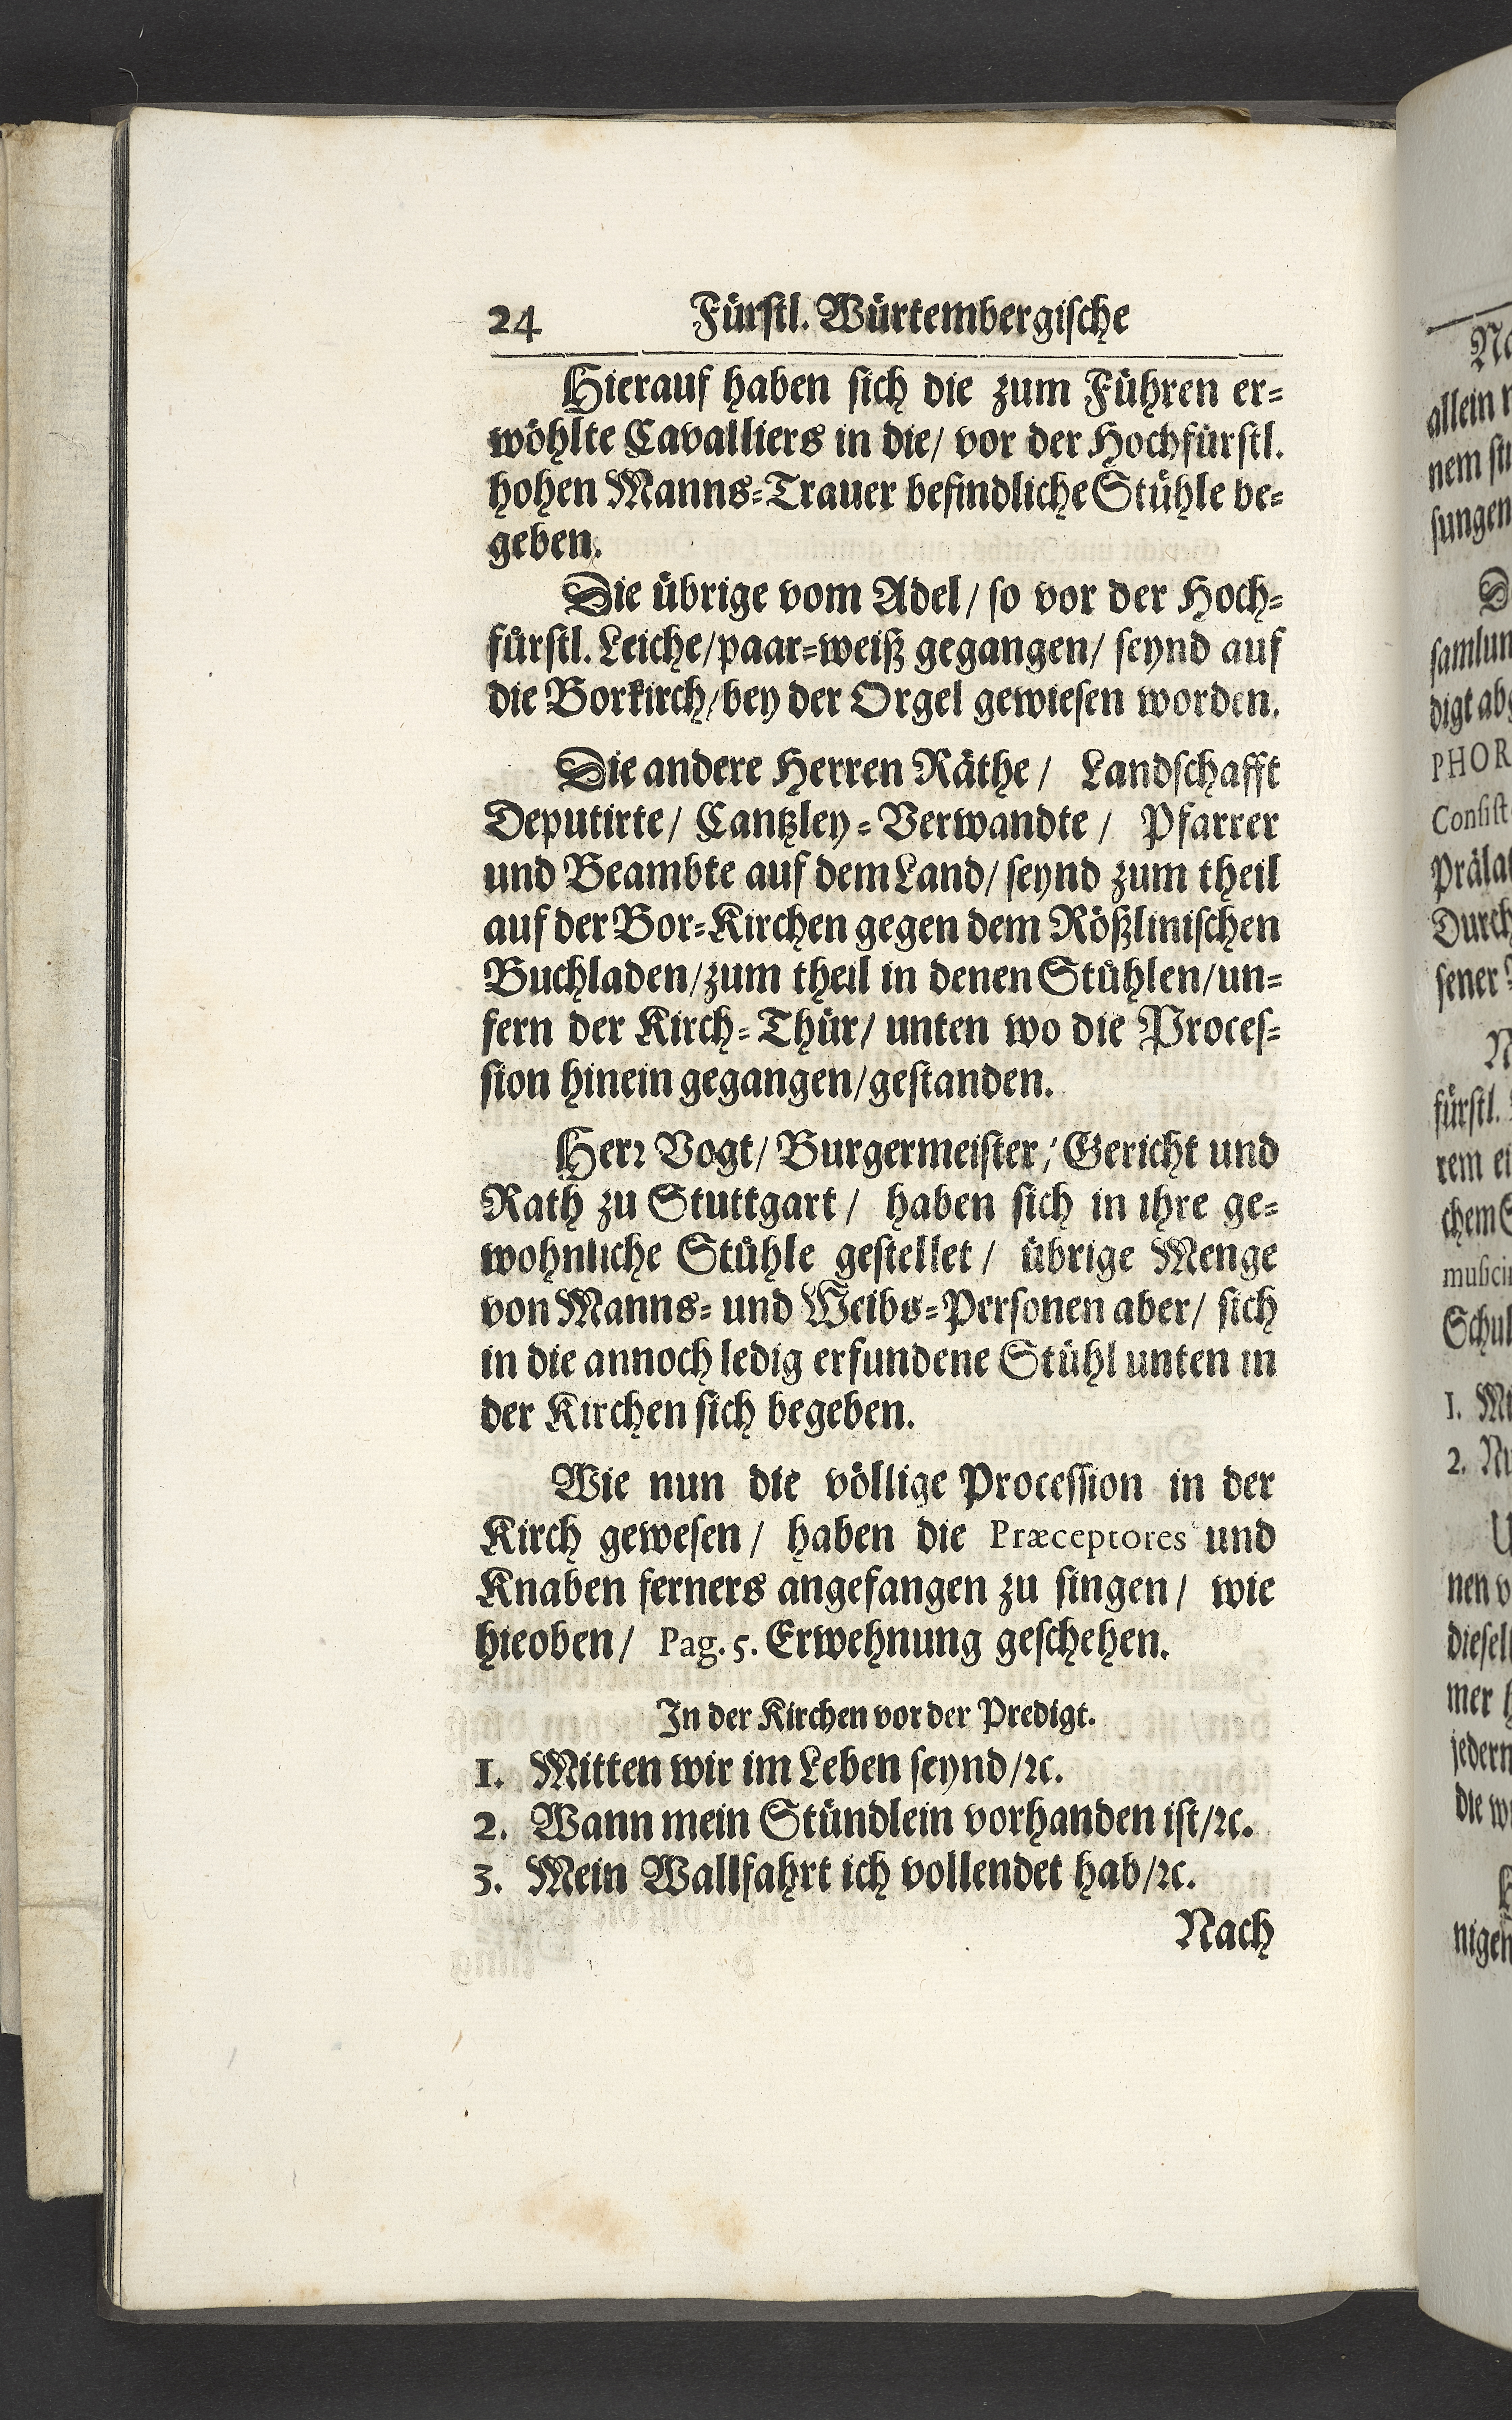 24 Fürstl. Würtembergische
Hierauf haben sich die zum Führen er=
wöhlte Cavalliers in die/ vor der Hochfürstl.
hohen Manns=Trauer befindliche Stühle be=
geben.
Die übrige vom Adel/ so vor der Hoch=
fürstl. Leiche/ paar=weiß gegangen/ seynd auf
die Borkirch/ bey der Orgel gewiesen worden.
Die andere Herren Räthe/ Landschafft
Deputirte/ Cantzley=Verwandte/ Pfarrer
und Beambte auf dem Land/ seynd zum theil
auf der Bor=Kirchen gegen dem Rößlinischen
Buchladen/ zum theil in denen Stühlen/ un=
fern der Kirch=Thür/ unten wo die Proces=
sion hinein gegangen/ gestanden.
Herr Vogt/ Burgermeister/ Gericht und
Rath zu Stuttgart/ haben sich in ihre ge=
wohnliche Stühle gestellet/ übrige Menge
von Manns= und Weibs=Personen aber/ sich
in die annoch ledig erfundene Stühl unten in
der Kirchen sich begeben.
Wie nun die völlige Procession in der
Kirch gewesen/ haben die Præceptores und
Knaben ferners angefangen zu singen/ wie
hieoben/ Pag. 5. Erwehnung geschehen.
In der Kirchen vor der Predigt.
1. Mitten wir im Leben seynd/ꝛc.
2. Wann mein Stündlein vorhanden ist/ꝛc.
3. Mein Wallfahrt ich vollendet hab/ꝛc.
Nach